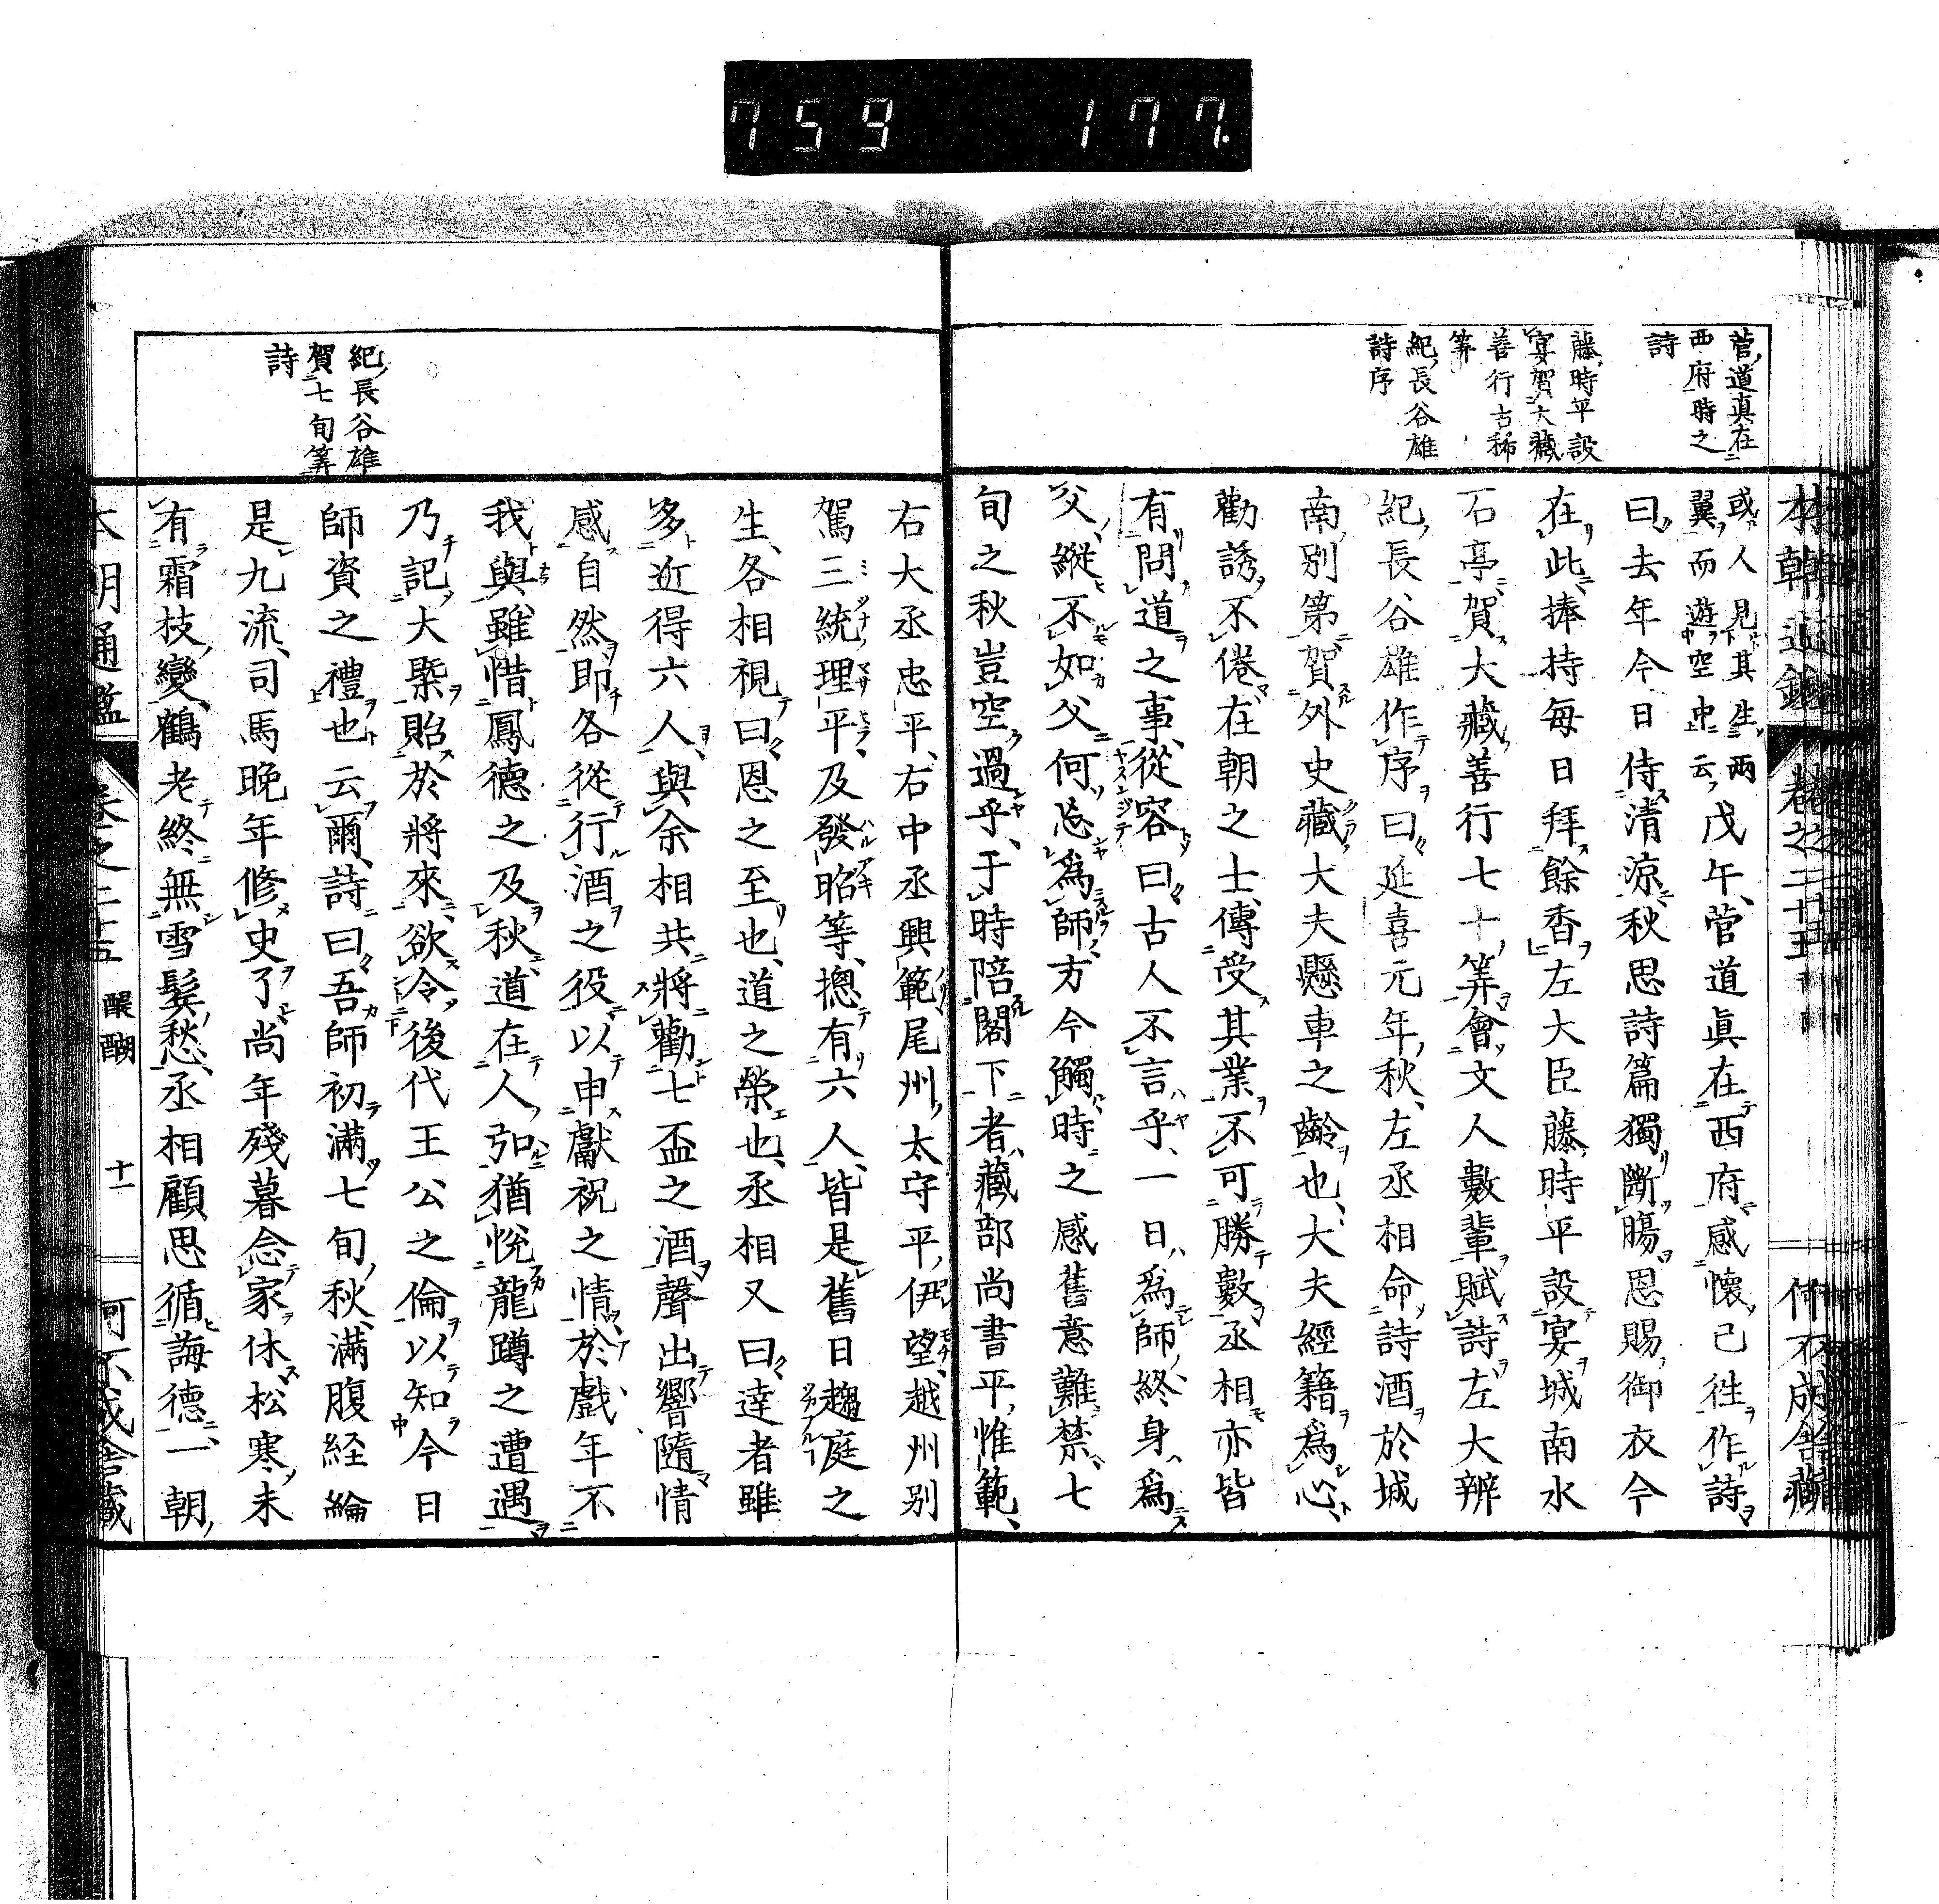 759 177
菅道真在
西府時之
詩
藤時平設
宴賀大藏
善行古稀
筭
紀長谷雄
詩序
或人見其生兩
翼而遊空中云
戊午、菅道眞在西府感懷已往作詩
曰去年今日侍清凉秋思詩篇獨斷膓恩賜御衣今
在此捧持每日拜餘香左大臣藤時平設宴城南水
石亭賀大藏善行七十筭會文人數輩賦詩左大辨
紀長谷雄作序曰延喜元年秋、左丞相命詩酒於城
南別第賀外史藏大夫懸車之齡也、大夫經籍爲心
勸誘不倦在朝之士、傳受其業不可勝數丞相亦皆
有問道之事、從容曰古人不言乎、一日爲師終身爲
父、縱不如父父何忌爲師方今觸時之感舊意難禁、七
旬之秋豈空過乎、于時陪閣下者、藏部尚書平惟範、
右大丞忠平、右中丞興範尾州太守平伊望、越州別
駕三統理平、及發昭等、摠有六人、皆是舊日趨庭之
生、各相視曰恩之至也、道之榮也、丞相又曰達者雖
多近得六人、與余相共將勸七盃之酒聲出響隨情
感自然即各從行酒之役以申獻祝之情於戲年不
我與雖惜鳳德之及秋道在人弘猶悅龍蹲之遭遇
乃記大槩貽於將來、欲令後代王公之倫以知今日
師資之禮也云爾、詩曰吾師初滿七旬秋滿腹経綸
是九流、司馬晚年修史了尚年殘暮念家休松寒未
有霜枝變、鶴老終無雪髮愁、丞相顧思循誨德一朝
紀長谷雄
賀七旬筭
詩
卷之二十五
醍醐
十一